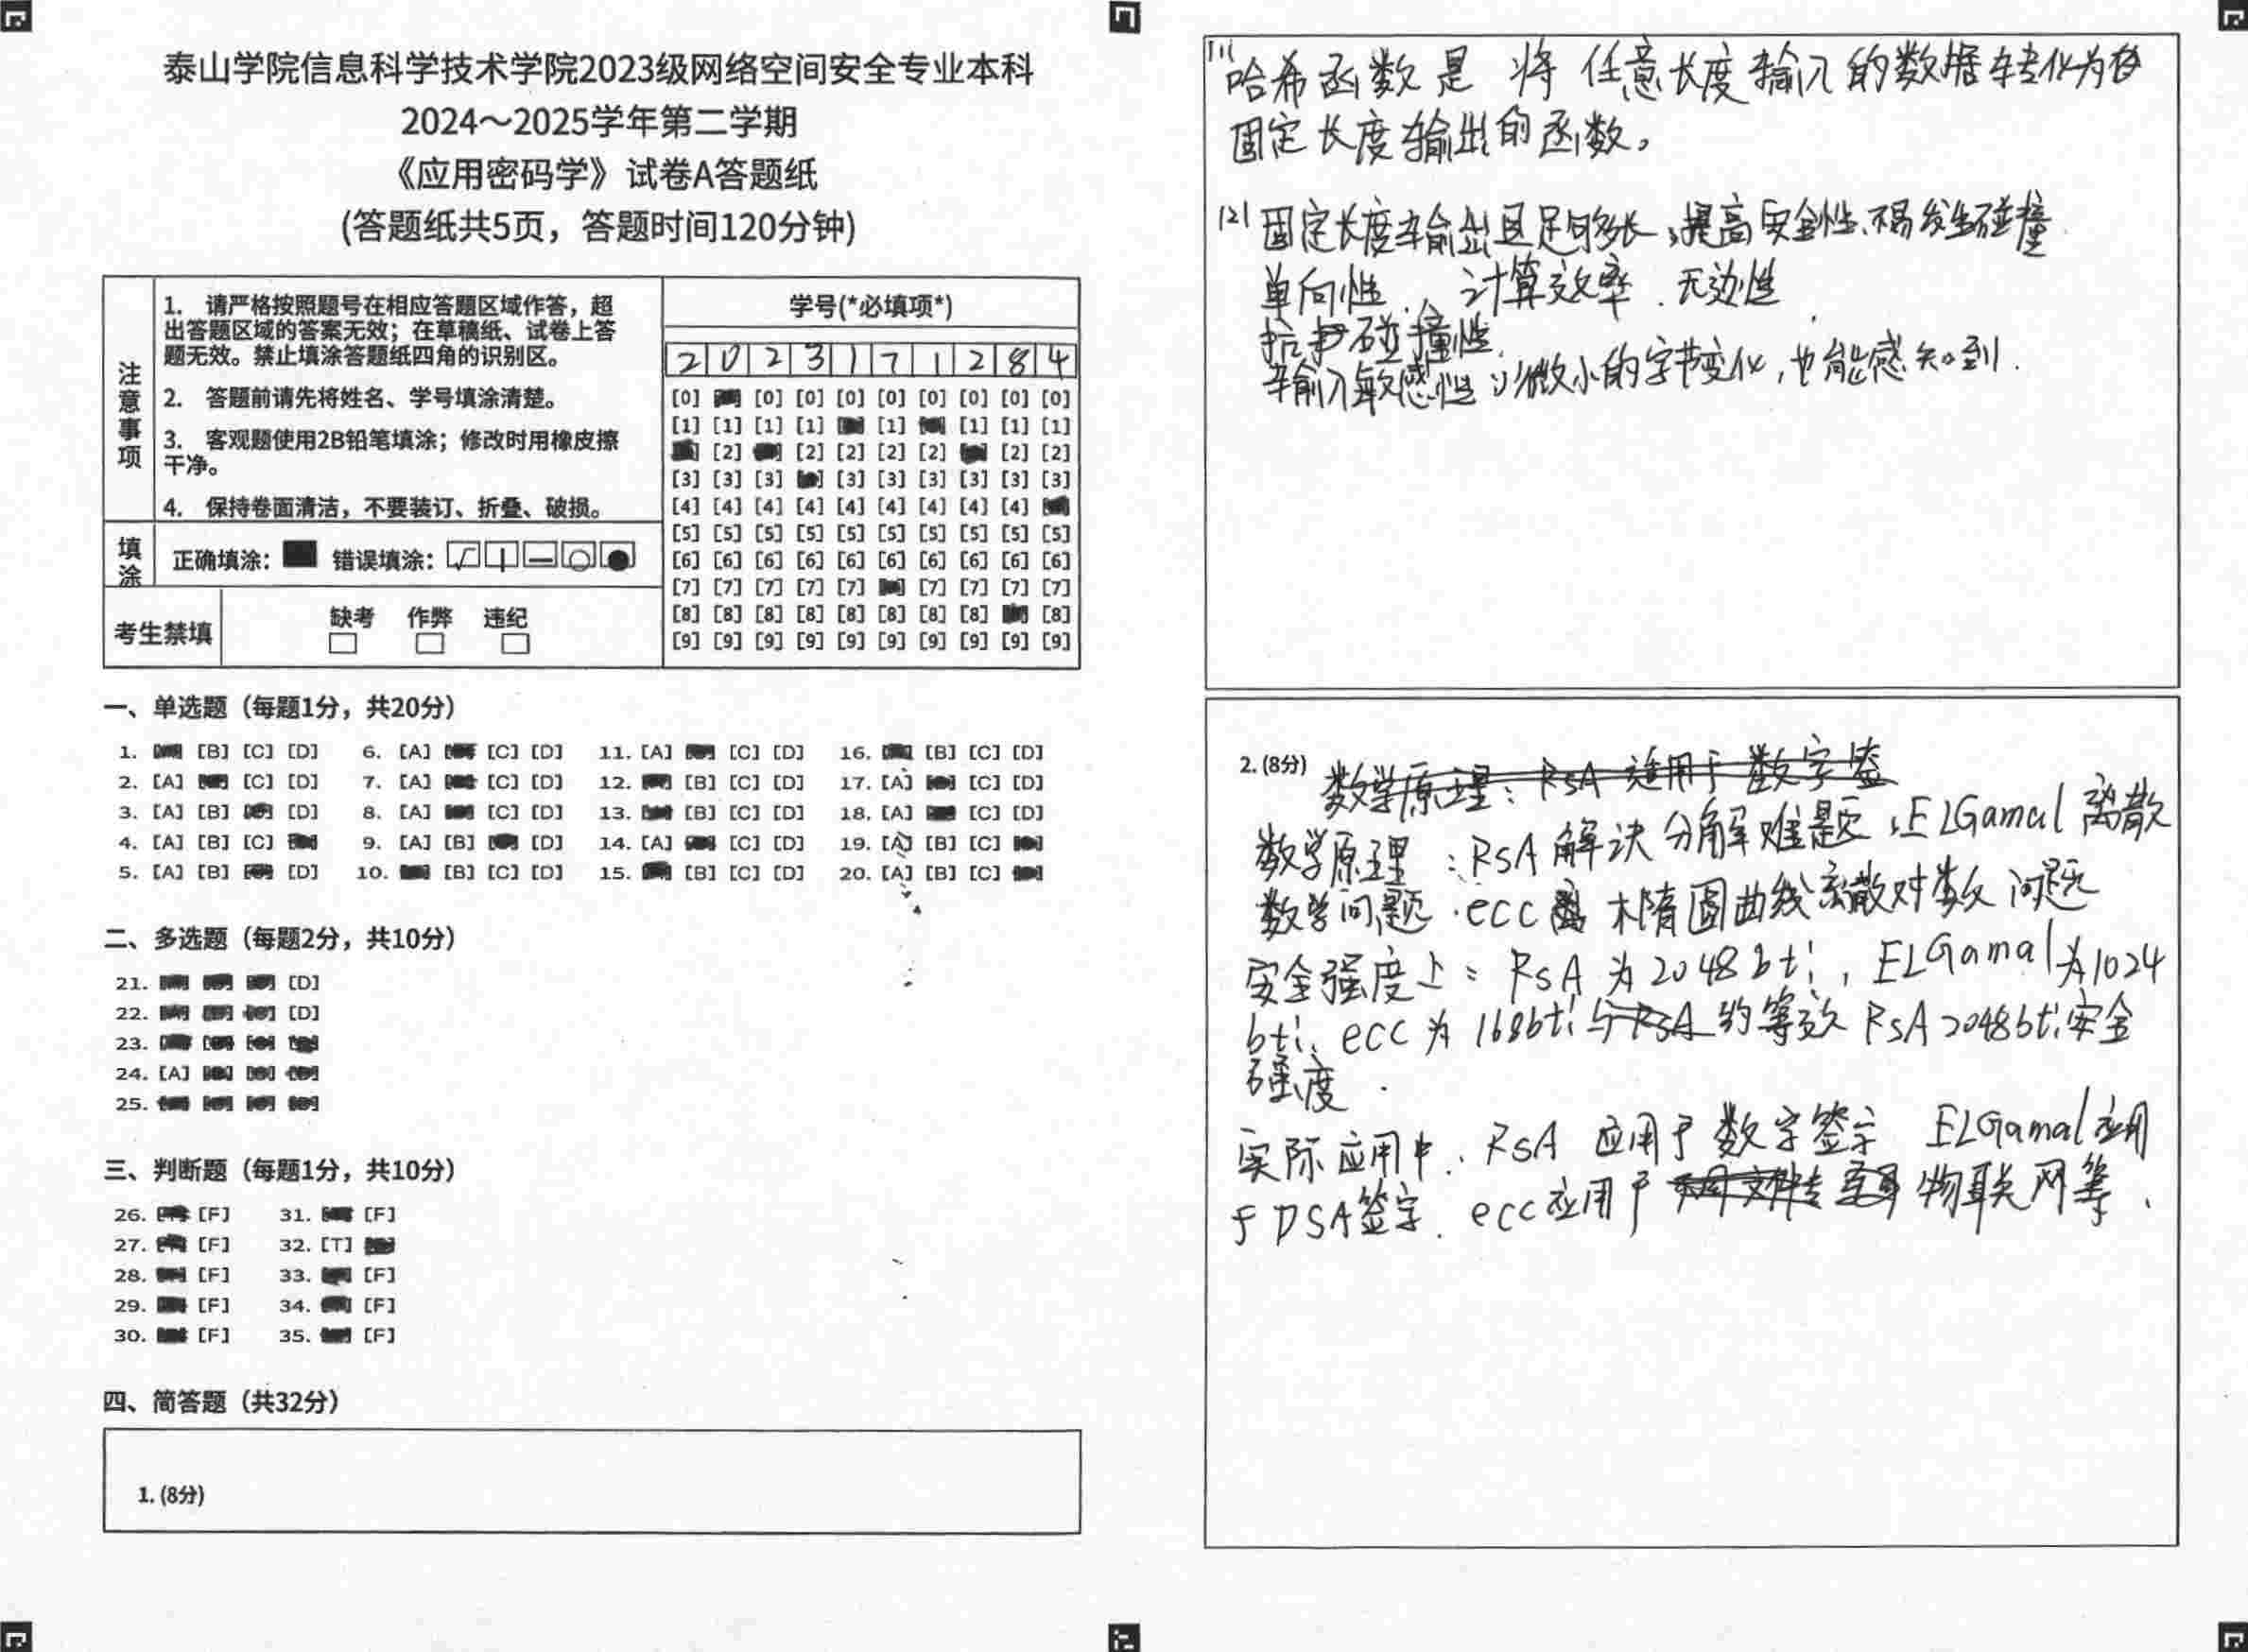 泰山学院信息科学技术学院2023级网络空间安全专业本科
2024～2025学年第二学期
《应用密码学》试卷A答题纸
(答题纸共5页，答题时间120分钟)
注意事项
1. 请严格按照题号在相应答题区域作答，超
出答题区域的答案无效；在草稿纸、试卷上答
题无效。禁止填涂答题纸四角的识别区。
2. 答题前请先将姓名、学号填涂清楚。
3. 客观题使用2B铅笔填涂；修改时用橡皮擦
干净。
4. 保持卷面清洁，不要装订、折叠、破损。
填涂
正确填涂： 错误填涂：
考生禁填
缺考 作弊 违纪
学号(*必填项*)
2 0 2 3 1 7 1 2 8 4
[0] [0] [0] [0] [0] [0] [0] [0] [0]
[1] [1] [1] [1] [1] [1] [1] [1]
[2] [2] [2] [2] [2] [2] [2]
[3] [3] [3] [3] [3] [3] [3] [3] [3]
[4] [4] [4] [4] [4] [4] [4] [4] [4]
[5] [5] [5] [5] [5] [5] [5] [5] [5] [5]
[6] [6] [6] [6] [6] [6] [6] [6] [6] [6]
[7] [7] [7] [7] [7] [7] [7] [7] [7]
[8] [8] [8] [8] [8] [8] [8] [8] [8]
[9] [9] [9] [9] [9] [9] [9] [9] [9] [9]
一、单选题（每题1分，共20分）
1. [B] [C] [D] 6. [A] [C] [D] 11. [A] [C] [D] 16. [B] [C] [D]
2. [A] [C] [D] 7. [A] [C] [D] 12. [B] [C] [D] 17. [A] [C] [D]
3. [A] [B] [D] 8. [A] [C] [D] 13. [B] [C] [D] 18. [A] [C] [D]
4. [A] [B] [C] 9. [A] [B] [D] 14. [A] [C] [D] 19. [A] [B] [C]
5. [A] [B] [D] 10. [B] [C] [D] 15. [B] [C] [D] 20. [A] [B] [C]
二、多选题（每题2分，共10分）
21. [D]
22. [D]
23.
24. [A]
25.
三、判断题（每题1分，共10分）
26. [F] 31. [F]
27. [F] 32. [T]
28. [F] 33. [F]
29. [F] 34. [F]
30. [F] 35. [F]
四、简答题（共32分）
1. (8分)
(1) 哈希函数是 将 任意长度输入的数据转化为
固定长度输出的函数。
(2) 固定长度输出且足够长，提高安全性、不易发生碰撞
单向性. 计算效率. 无边性
抗碰撞性.
输入敏感性 以微小的字节变化，也能感知到.
2. (8分) 数学原理：RSA 适用于数字签
数学原理：RSA 解决分解难题，ELGamal 离散
数学问题. ecc 椭圆曲线离散对数问题
安全强度上：RSA 为 2048 bti，ELGamal为1024
bti. ecc 为 168bti 与RSA 约等效 RSA 2048bti安全
强度.
实际应用中. RSA 应用于数字签字 ELGamal应用
于DSA签字. ecc应用于 物联网等.